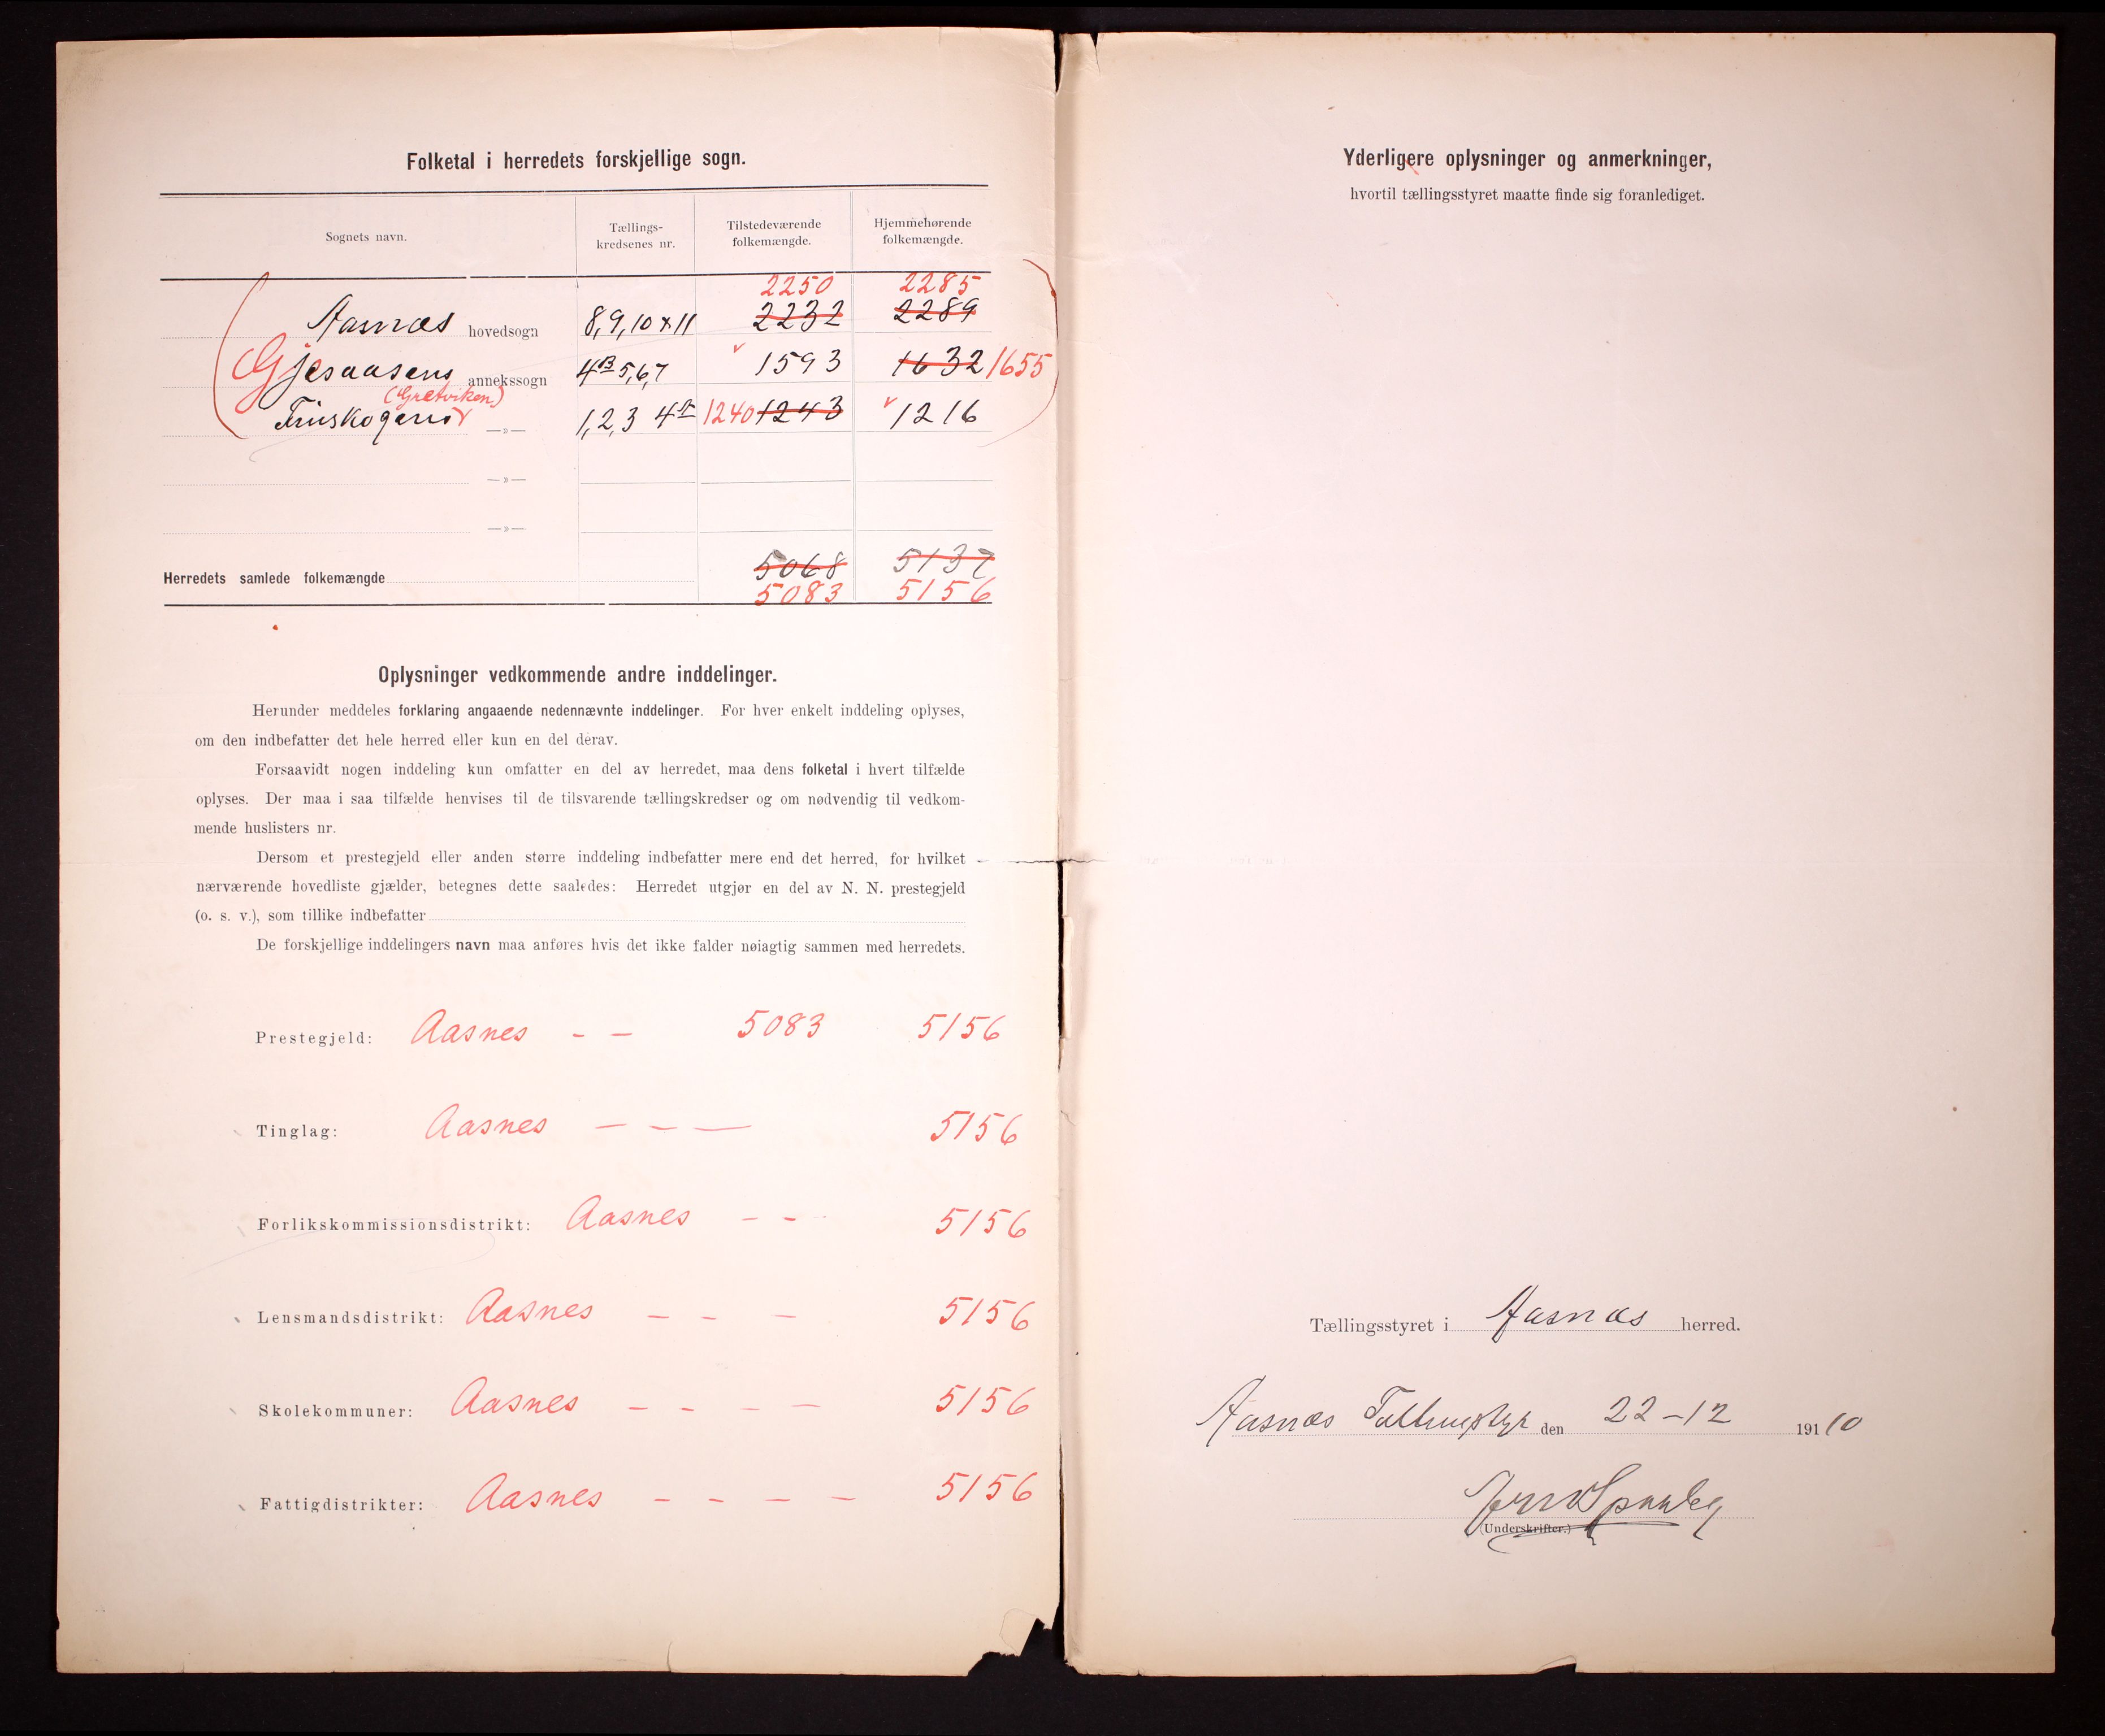 Folketal i herredets forskjellige sogn.
Sognets navn.
Tællings-
kredsenes nr.
Tilstedeværende
folkemængde.
Hjemmehørende
folkemængde.
2250 2285
Aasnæs hovedsogn 8,9,10 & 11 2232 2289
Gjesaasens annekssogn 4B 5,6,7 1593 1632 1655
(Gretviken)
Finskogens —»— 1,2,3 4A 1240 1243 1216
—»—
—»—
5068 5137
Herredets samlede folkemængde
5083 5156
Oplysninger vedkommende andre inddelinger.
Herunder meddeles forklaring angaaende nedennævnte inddelinger. For hver enkelt inddeling oplyses,
om den indbefatter det hele herred eller kun en del derav.
Forsaavidt nogen inddeling kun omfatter en del av herredet, maa dens folketal i hvert tilfælde
oplyses. Der maa i saa tilfælde henvises til de tilsvarende tællingskredser og om nødvendig til vedkom-
mende huslisters nr.
Dersom et prestegjeld eller anden større inddeling indbefatter mere end det herred, for hvilket
nærværende hovedliste gjælder, betegnes dette saaledes: Herredet utgjør en del av N. N. prestegjeld
(o. s. v.), som tillike indbefatter
De forskjellige inddelingers navn maa anføres hvis det ikke falder nøiagtig sammen med herredets.
Prestegjeld: Aasnes - - 5083 5156
Tinglag: Aasnes - - - 5156
Forlikskommissionsdistrikt: Aasnes - - 5156
Lensmandsdistrikt: Aasnes - - - 5156
Skolekommuner: Aasnes - - - - 5156
Fattigdistrikter: Aasnes - - - - 5156
Yderligere oplysninger og anmerkninger,
hvortil tællingsstyret maatte finde sig foranlediget.
Tællingsstyret i Aasnæs herred.
Aasnæs den 22-12 19110
(Underskrifter.)